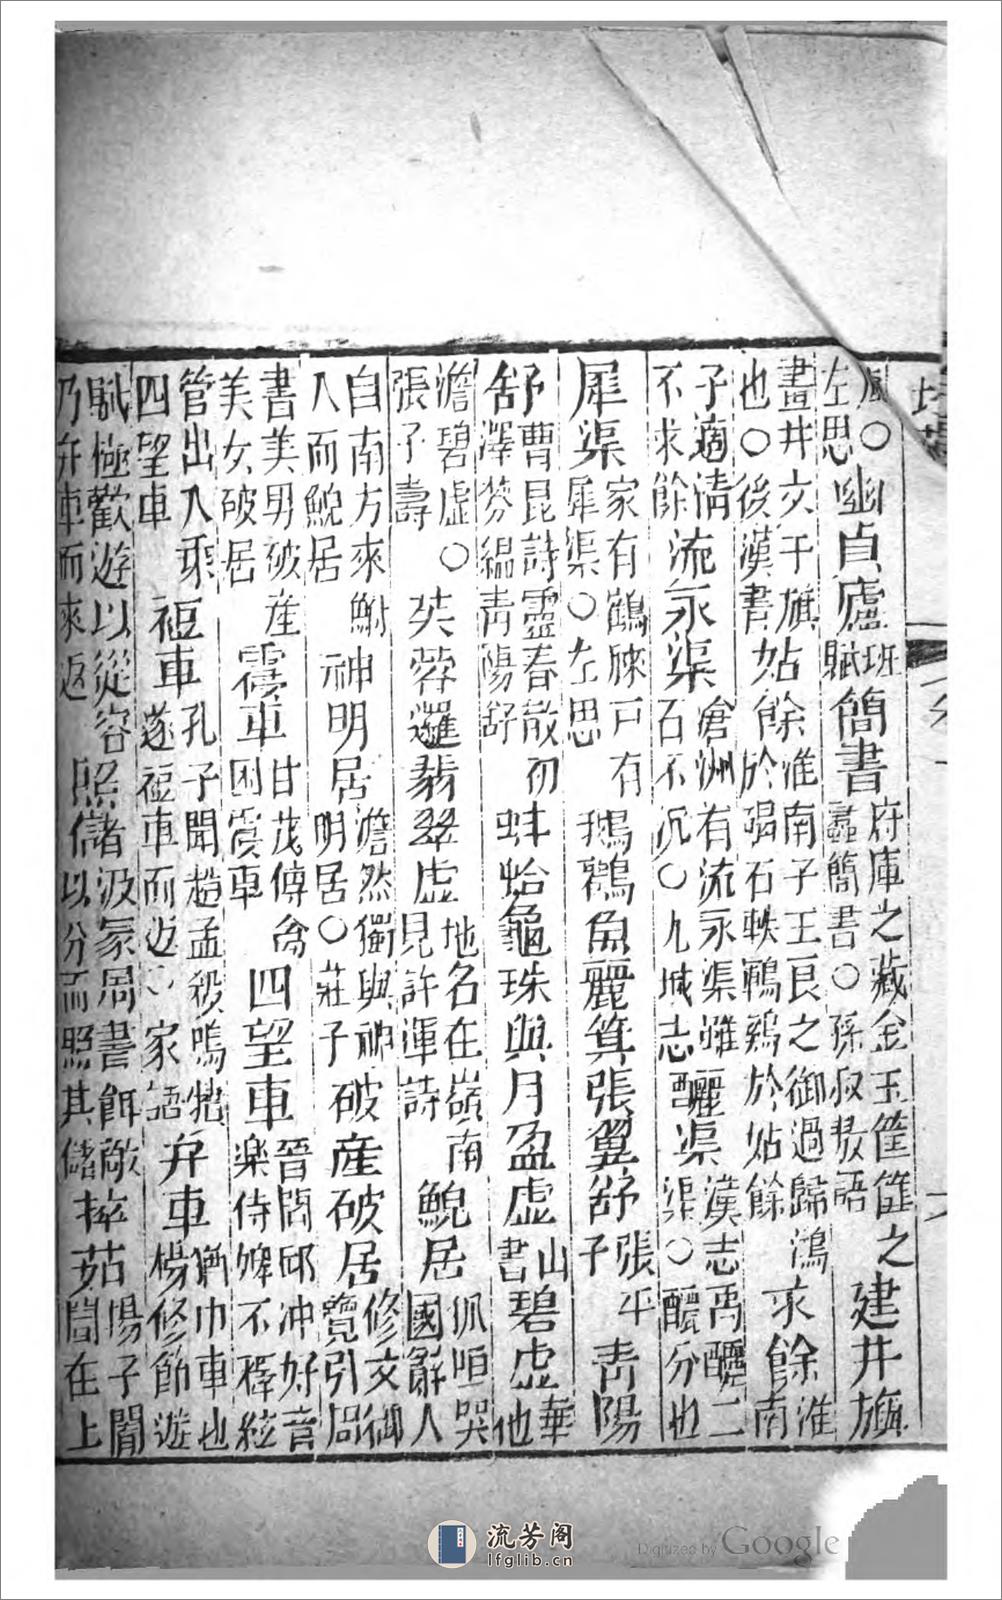 虛○
左思
幽貞廬
班
賦
簡書
府庫之藏金玉筐篚之
蠹簡書○孫叔敖語
建井旟
畫井文于旟
也○後漢書
姑餘
淮南子王良之御過歸鴻
於碣石軼鶤鷄於姑餘
求餘
淮
南
子適清
不求餘
流永渠
滄洲有流永渠雖
石不沉○九域志
釃渠
漢志禹釃二
渠○釃分也
犀渠
家有鶴膝戸有
犀渠○左思
鵝鸛魚麗箕張翼舒
張平
子
青陽
舒
曹昆詩靈春散初
澤芬縕青陽舒
蚌蛤龜珠與月盈虛
山
書
碧虛
華
他
澹碧虛○
張子壽
芙蓉邏翡翠虛
地名在嶺南
見許渾詩
鯢居
佩咺哭
國辭人
自南方來鮒
人而鯢居
神明居
澹然獨與神
明居○莊子
破產破居
修文御
覽引周
書美男破產
美女破居
震車
甘茂傳禽
困震車
四望車
晉閻邱沖好音
樂侍婢不釋絃
管出入乘
四望車
䄛車
孔子聞趙孟殺鳴犢
遂䄛車而返○家語
弁車
猶巾車也
楊修節遊
賦極歡遊以從容
乃弁車而來返
照儲
汲冢周書餌敵
以分而照其儲
萃茹
陽子聞
閭在上
流芳阁
lfglib.cn
Digitized by Google